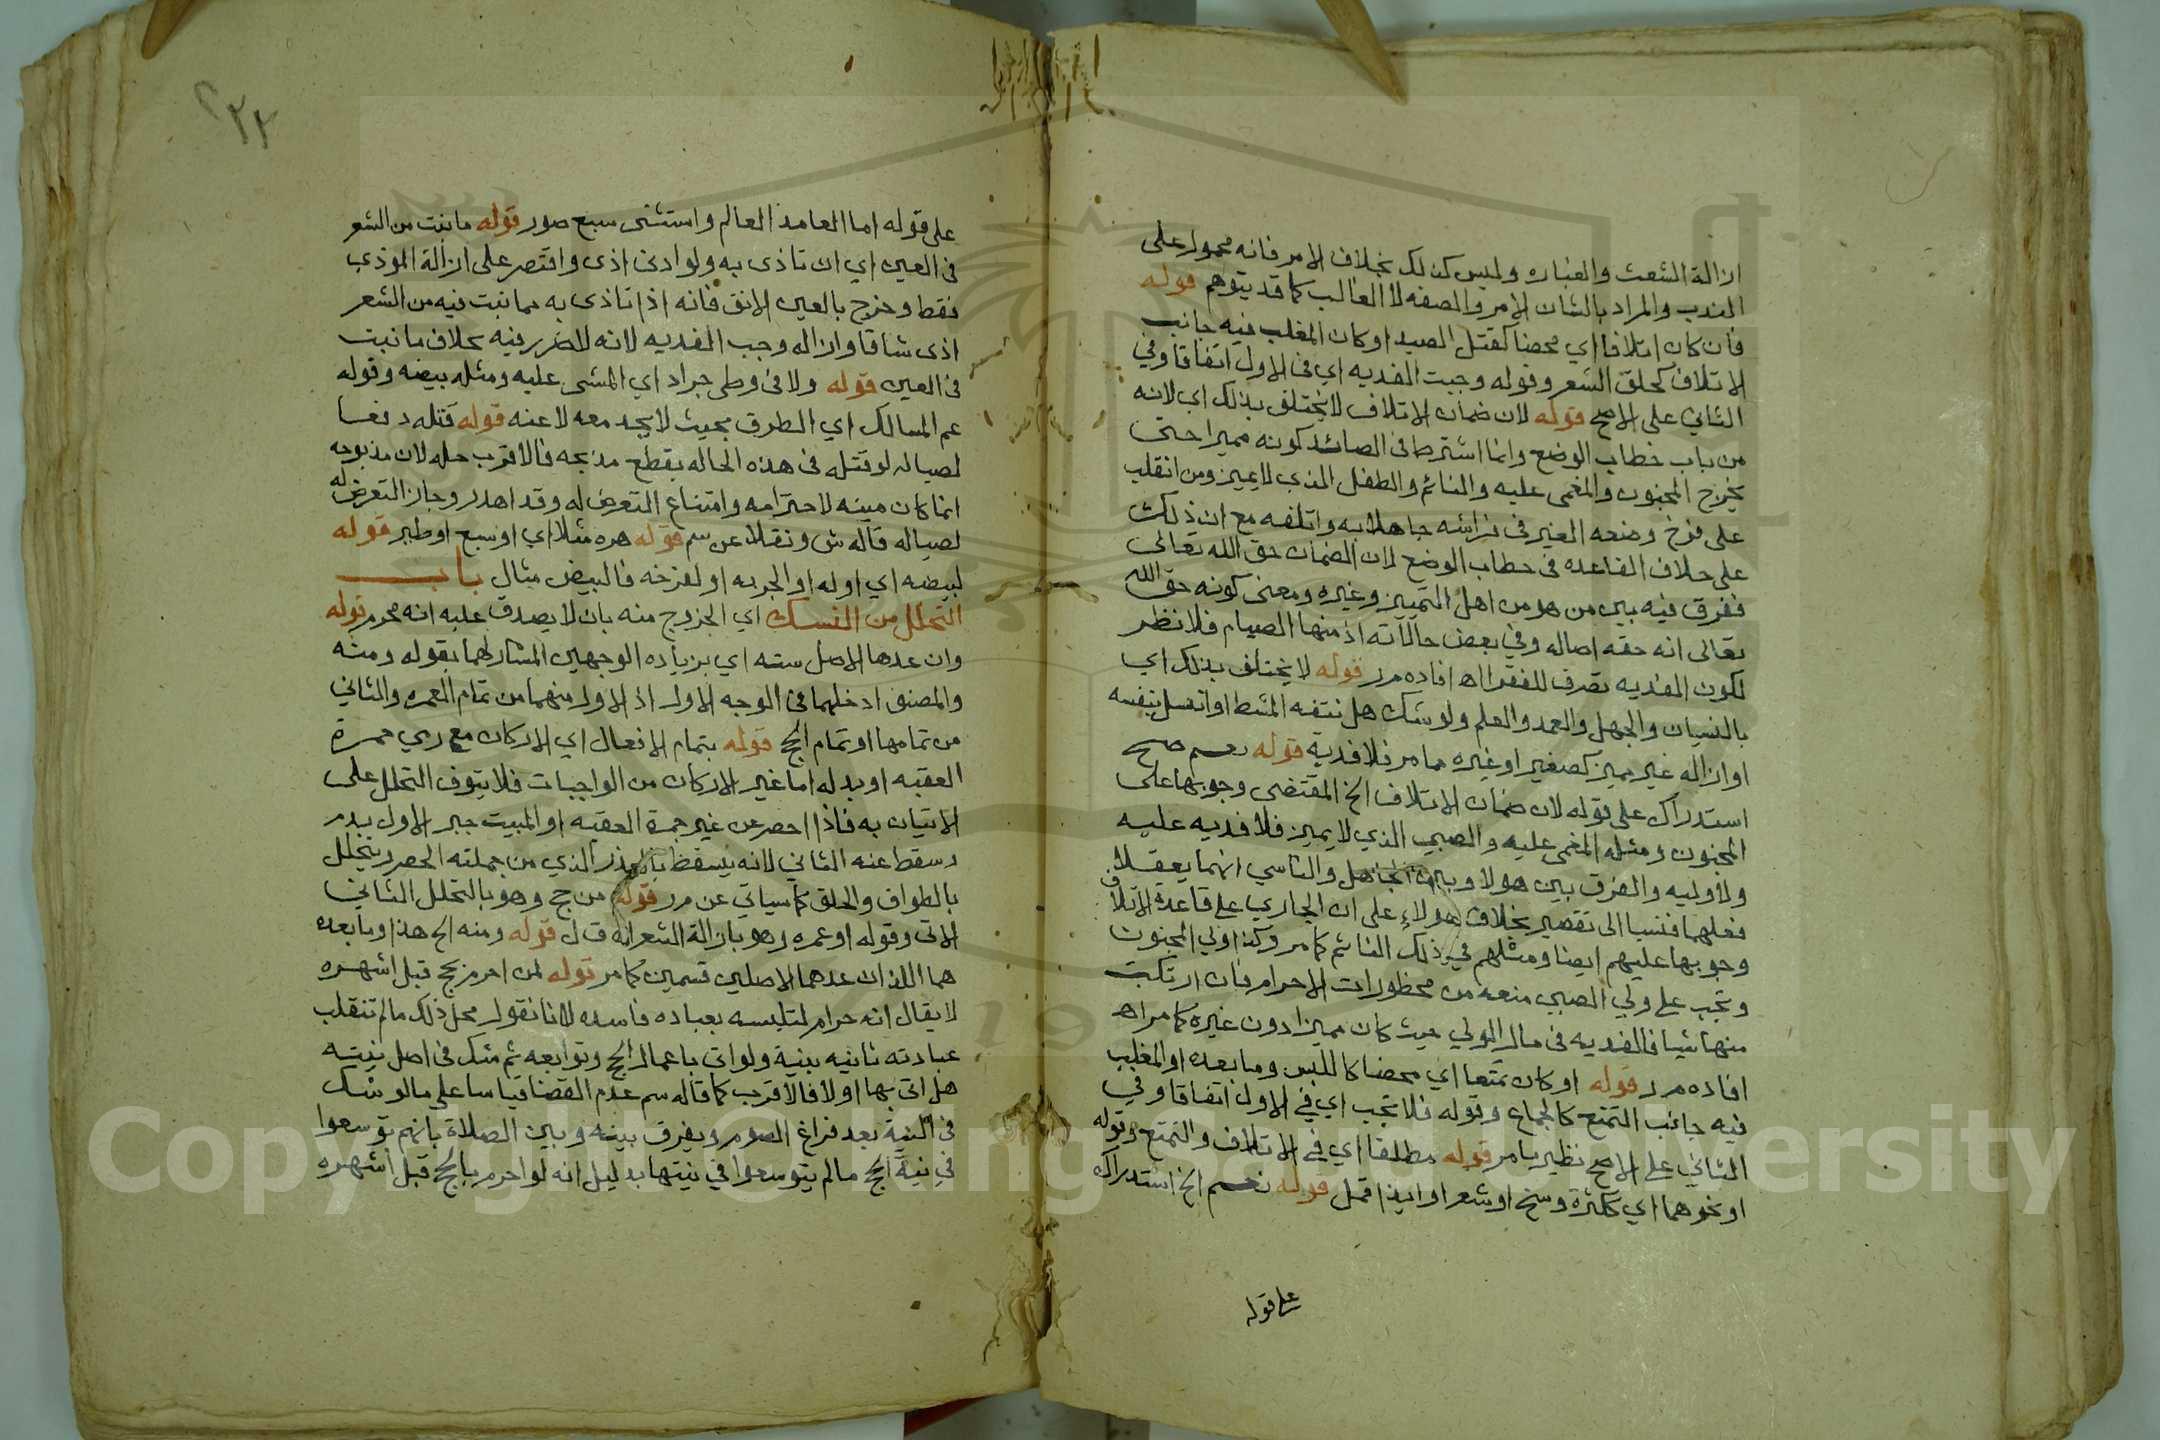 ازالة الشعث والغبار وليس كذلك بخلاف الامر فانه محمول على
الندب والمراد بالشان الامر والصفه لا الغالب كما قد يتوهم قوله
فان كان اتلافا اي محضا كقتل الصيد او كان المغلب فيه جانب
الاتلاف كحلق الشعر وقوله وجبت الفديه اي في الاول اتفاقا وفي
الثاني على الاصح قوله لان ضمان الاتلاف لا يختلف بذلك اي لانه
من باب خطاب الوضع وانما اشترط في الصائد كونه مميزا حتى
يخرج المجنون والمغمى عليه والنائم والطفل الذي لا يميز ومن انقلب
على فرخ وضعه الغير في فراشه جاهلا به واتلفه مع ان ذلك
على خلاف القاعده في خطاب الوضع لان الضمان حق الله تعالى
ففرق فيه بين من هو من اهل التمييز وغيره ومعنى كونه حق الله
تعالى انه حقه اصاله وفي بعض حالاته اذ منها الصيام فلا نظر
لكون الفديه تصرف للفقرا اه افاده مر قوله لا يختلف بذلك اي
بالنسيان والجهل والعمد والعلم ولو شك هل نتفه المشط او انسل بنفسه
او ازاله غير مميز كصغير او غيره مما مر فلا فدية قوله نعم صحح
استدراك على قوله لان ضمان الاتلاف الخ المقتضى وجوبها على
المجنون ومثله المغمى عليه والصبي الذي لا يميز فلا فديه عليه
ولا وليه والفرق بين هولا وبين الجاهل والناسي انهما يعقلان
فعلهما فنسبا الى تقصير بخلاف هولاء على ان الجاري على قاعدة الاتلاف
وجوبها عليهم ايضا ومثلهم في ذلك النائم كما مر وكذا ولي المجنون
ويجب على ولي الصبي منعه من محظورات الاحرام فان ارتكبت
منها شيا فالفديه في مال الولي حيث كان مميزا دون غيره كما مر اه
افاده مر قوله او كان تمتعا اي محضا كاللبس وما بعده او المغلب
فيه جانب التمتع كالجماع وقوله فلا تجب اي في الاول اتفاقا وفي
الثاني على الاصح نظير ما مر قوله مطلقا اي في الاتلاف والتمتع وقوله
او نحوهما اي ككثرة وسخ او شعر او ايذا قمل قوله نعم الخ استدراك
على قوله
٢٢٢
على قوله اما العامد العالم واستثنى سبع صور قوله ما نبت من الشعر
في العين اي ان تاذى به ولو ادنى اذى واقتصر على ازالة الموذي
فقط وخرج بالعين الانف فانه اذا تاذى به مما نبت فيه من الشعر
اذى شاقا وازاله وجب الفديه لانه لا ضرر فيه بخلاف ما نبت
في العين قوله ولا في وطي جراد اي المشى عليه ومثله بيضه وقوله
عم المسالك اي الطرق بحيث لا يجد معه لا عنه قوله قتله دفعا
لصياله لو قتله في هذه الحاله بقطع مذبحه فالاقرب حله لان مذبوحه
انما كان ميته لاحترامه وامتناع التعرض له وقد اهدر وجاز التعرض له
لصياله قاله ش ونقلا عن سم قوله هره مثلا اي او سبع او طير قوله
لبيضه اي او له او الجربه او لفرخه فالبيض مثال باب
التحلل من النسك اي الخروج منه بان لا يصدق عليه انه محرم قوله
وان عدها الاصل سته اي بزيادة الوجهين المشار لهما بقوله ومنه
والمصنف ادخلهما في الوجه الاول اذ الاول منهما من تمام العمره والثاني
من تمامها او تمام الحج قوله بتمام الافعال اي الاركان مع رمي جمرة
العقبه او بدله اما غير الاركان من الواجبات فلا يتوقف التحلل على
الاتيان به فاذا احصر عن غير جمرة العقبه او المبيت جبر الاول بدم
وسقط عنه الثاني لانه يسقط بالعذر الذي من جملته الحصر ويتحلل
بالطواف والحلق كما سياتي عن مر قوله من حج وهو بالتحلل الثاني
الاتي وقوله او عمره وهو بازالة الشعر اه ق ل قوله ومنه الخ هذا وما بعده
هما اللذان عدهما الاصلين قسمين كما مر قوله لمن احرم بحج قبل اشهره
لا يقال انه حرام لتلبسه بعباده فاسده لانا نقول محل ذلك ما لم تنقلب
عبادته ثانيه بنية ولو اتى باعمال الحج وتوابعه ثم شك في اصل نيته
هل اتى بها او لا فالاقرب كما قاله سم عدم القضا قياسا على ما لو شك
في النية بعد فراغ الصوم ويفرق بينه وبين الصلاة بانهم توسعوا
في نية الحج ما لم يتوسعوا في نيتها بدليل انه لو احرم بالحج قبل اشهره
Copyright © King Saud University